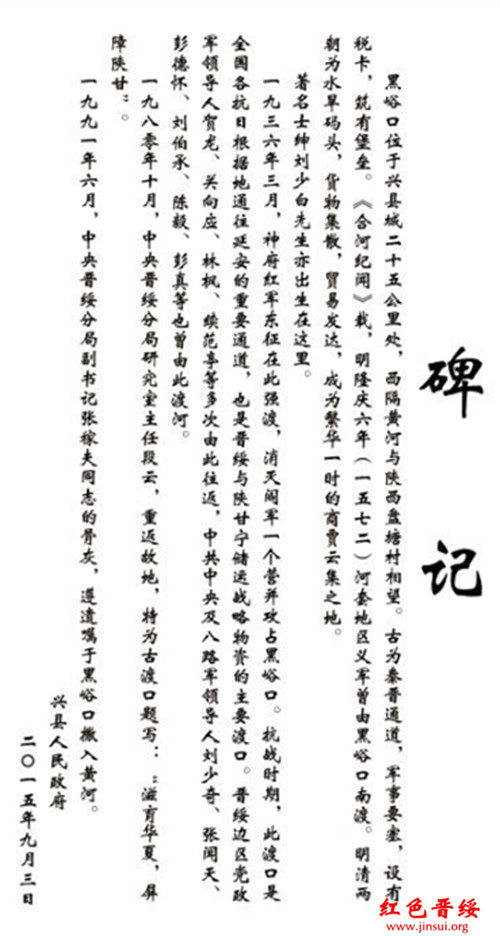 碑记
黑峪口位于兴县城二十五公里处，西隔黄河与陕西盘塘村相望。古为秦晋通道，军事要塞，设有
税卡，筑有堡垒。《合河纪闻》载，明隆庆六年（一五七二）河套地区义军曾由黑峪口南渡。明清两
朝为水旱码头，货物集散，贸易发达，成为繁华一时的商贾云集之地。
著名士绅刘少白先生亦出生在这里。
一九三六年三月，神府红军东征在此强渡，消灭阎军一个营并攻占黑峪口。抗战时期，此渡口是
全国各抗日根据地通往延安的重要通道，也是晋绥与陕甘宁储运战略物资的主要渡口。晋绥边区党政
军领导人贺龙、关向应、林枫、续范亭等多次由此往返，中共中央及八路军领导人刘少奇、张闻天、
彭德怀、刘伯承、陈毅、彭真等也曾由此渡河。
一九八零年十月，中央晋绥分局研究室主任段云，重返故地，特为古渡口题写：：滋育华夏，屏
障陕甘：。
一九九一年六月，中央晋绥分局副书记张稼夫同志的骨灰，遵遗嘱于黑峪口撒入黄河。
兴县人民政府
二〇一五年九月三日
红色晋绥
www.jinsui.org